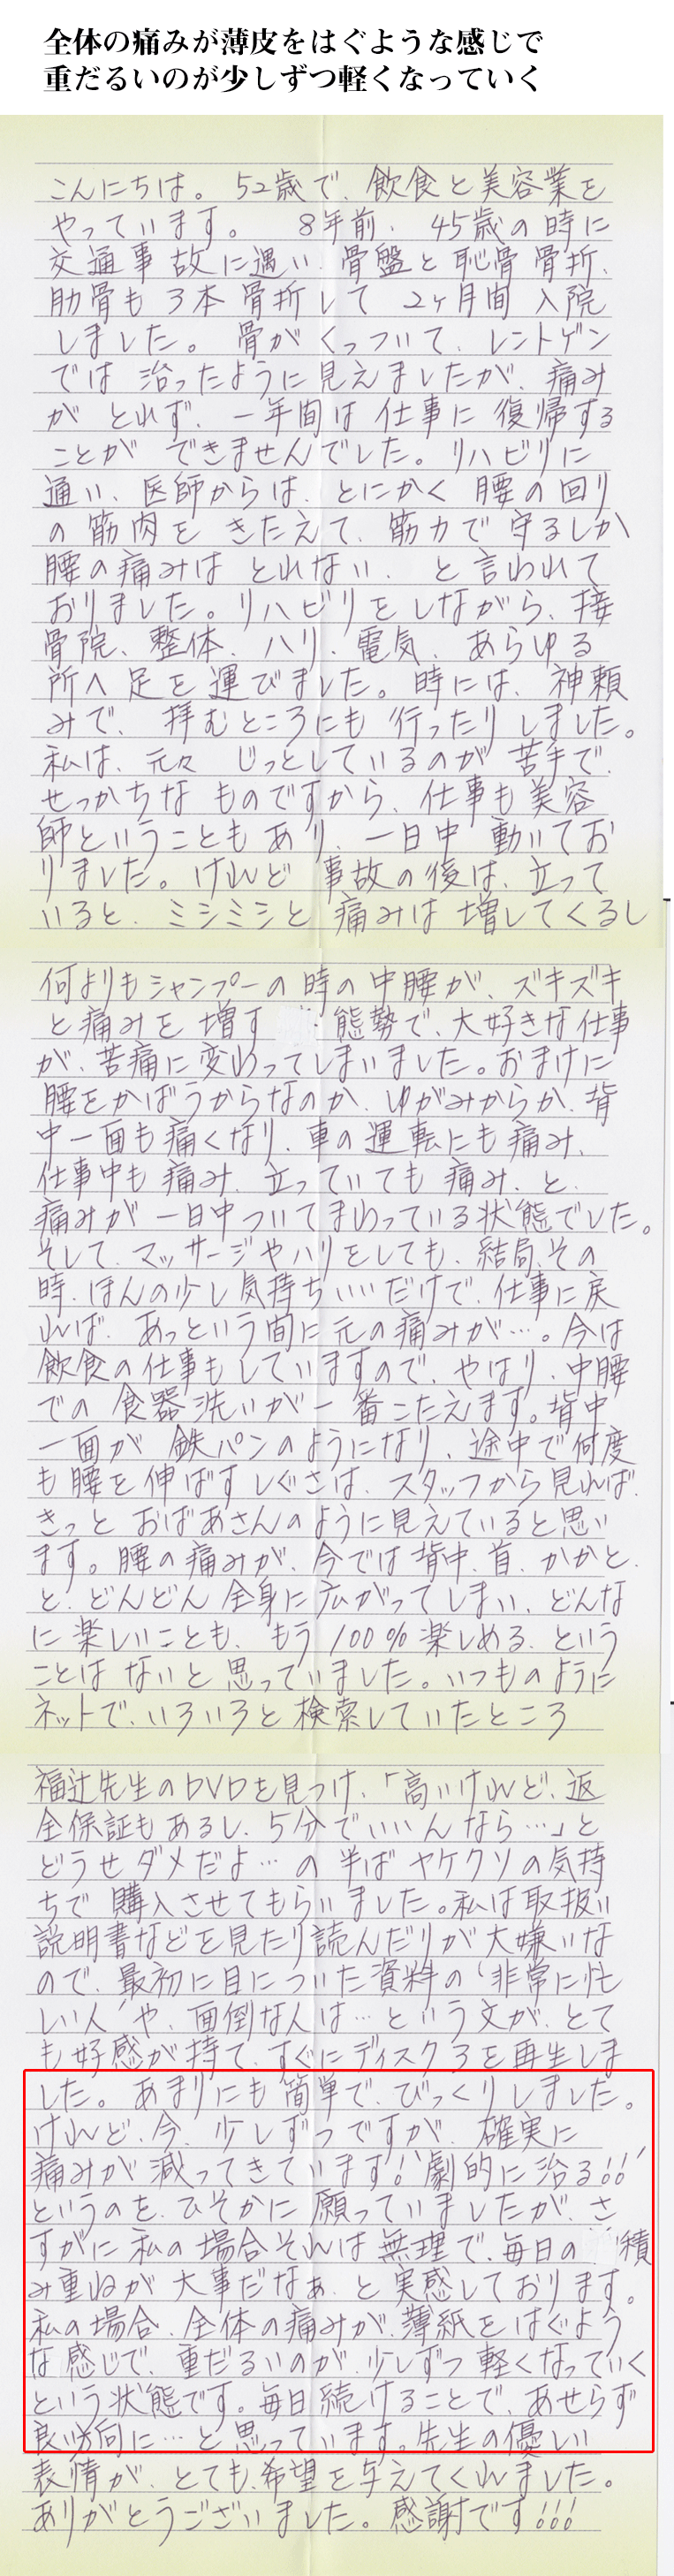 全体の痛みが薄皮をはぐような感じで
重だるいのが少しずつ軽くなっていく
こんにちは。52歳で、飲食と美容業を
やっています。 8年前、45歳の時に
交通事故に遇い、骨盤と恥骨骨折、
肋骨も3本骨折して 2ヶ月間入院
しました。骨がくっついて、レントゲン
では治ったように見えましたが、痛み
がとれず、一年間は仕事に復帰する
ことができませんでした。リハビリに
通い、医師からは、とにかく腰の回り
の筋肉をきたえて、筋力で守るしか
腰の痛みはとれない、と言われて
おりました。リハビリをしながら、接
骨院、整体、ハリ、電気、あらゆる
所へ足を運びました。時には、神頼
みで、拝むところにも行ったりしました。
私は、元々じっとしているのが苦手で、
せっかちなものですから、仕事も美容
師ということもあり、一日中動いてお
りました。けれど事故の後は、立って
いると、ミシミシと痛みは増してくるし
何よりもシャンプーの時の中腰が、ズキズキ
と痛みを増す 態勢で、大好きな仕事
が、苦痛に変わってしまいました。おまけに
腰をかばうからなのか、ゆがみからか、背
中一面も痛くなり、車の運転にも痛み、
仕事中も痛み、立っていても痛み、と、
痛みが一日中ついてまわっている状態でした。
そして、マッサージやハリをしても、結局、その
時、ほんの少し気持ちいいだけで、仕事に戻
れば、あっという間に元の痛みが…。今は
飲食の仕事もしていますので、やはり、中腰
での食器洗いが一番こたえます。背中
一面が鉄パンのようになり、途中で何度
も腰を伸ばすしぐさは、スタッフから見れば、
きっとおばあさんのように見えていると思い
ます。腰の痛みが、今では背中、首、かかと、
と、どんどん全身に広がってしまい、どんな
に楽しいことも、もう100%楽しめる、という
ことはないと思っていました。いつものように
ネットで、いろいろと検索していたところ
福辻先生のDVDを見つけ、「高いけれど、返
金保証もあるし、5分でいいんなら…」と
どうせダメだよ…の半ばヤケクソの気持
ちで購入させてもらいました。私は取扱い
説明書などを見たり読んだりが大嫌いな
ので、最初に目についた資料の「非常に忙
しい人」や、面倒な人は…という文が、とて
も好感が持て、すぐにディスク3を再生しま
した。あまりにも簡単で、びっくりしました。
けれど、今、少しずつですが、確実に
痛みが減ってきています!「劇的に治る!!」
というのを、ひそかに願っていましたが、さ
すがに私の場合それは無理で、毎日の 積
み重ねが大事だなぁ、と実感しております。
私の場合、全体の痛みが、薄紙をはぐよう
な感じで、重だるいのが、少しずつ軽くなっていく
という状態です。毎日続けることで、あせらず
良い方向に…と思っています。先生の優しい
表情が、とても、希望を与えてくれました。
ありがとうございました。感謝です!!!